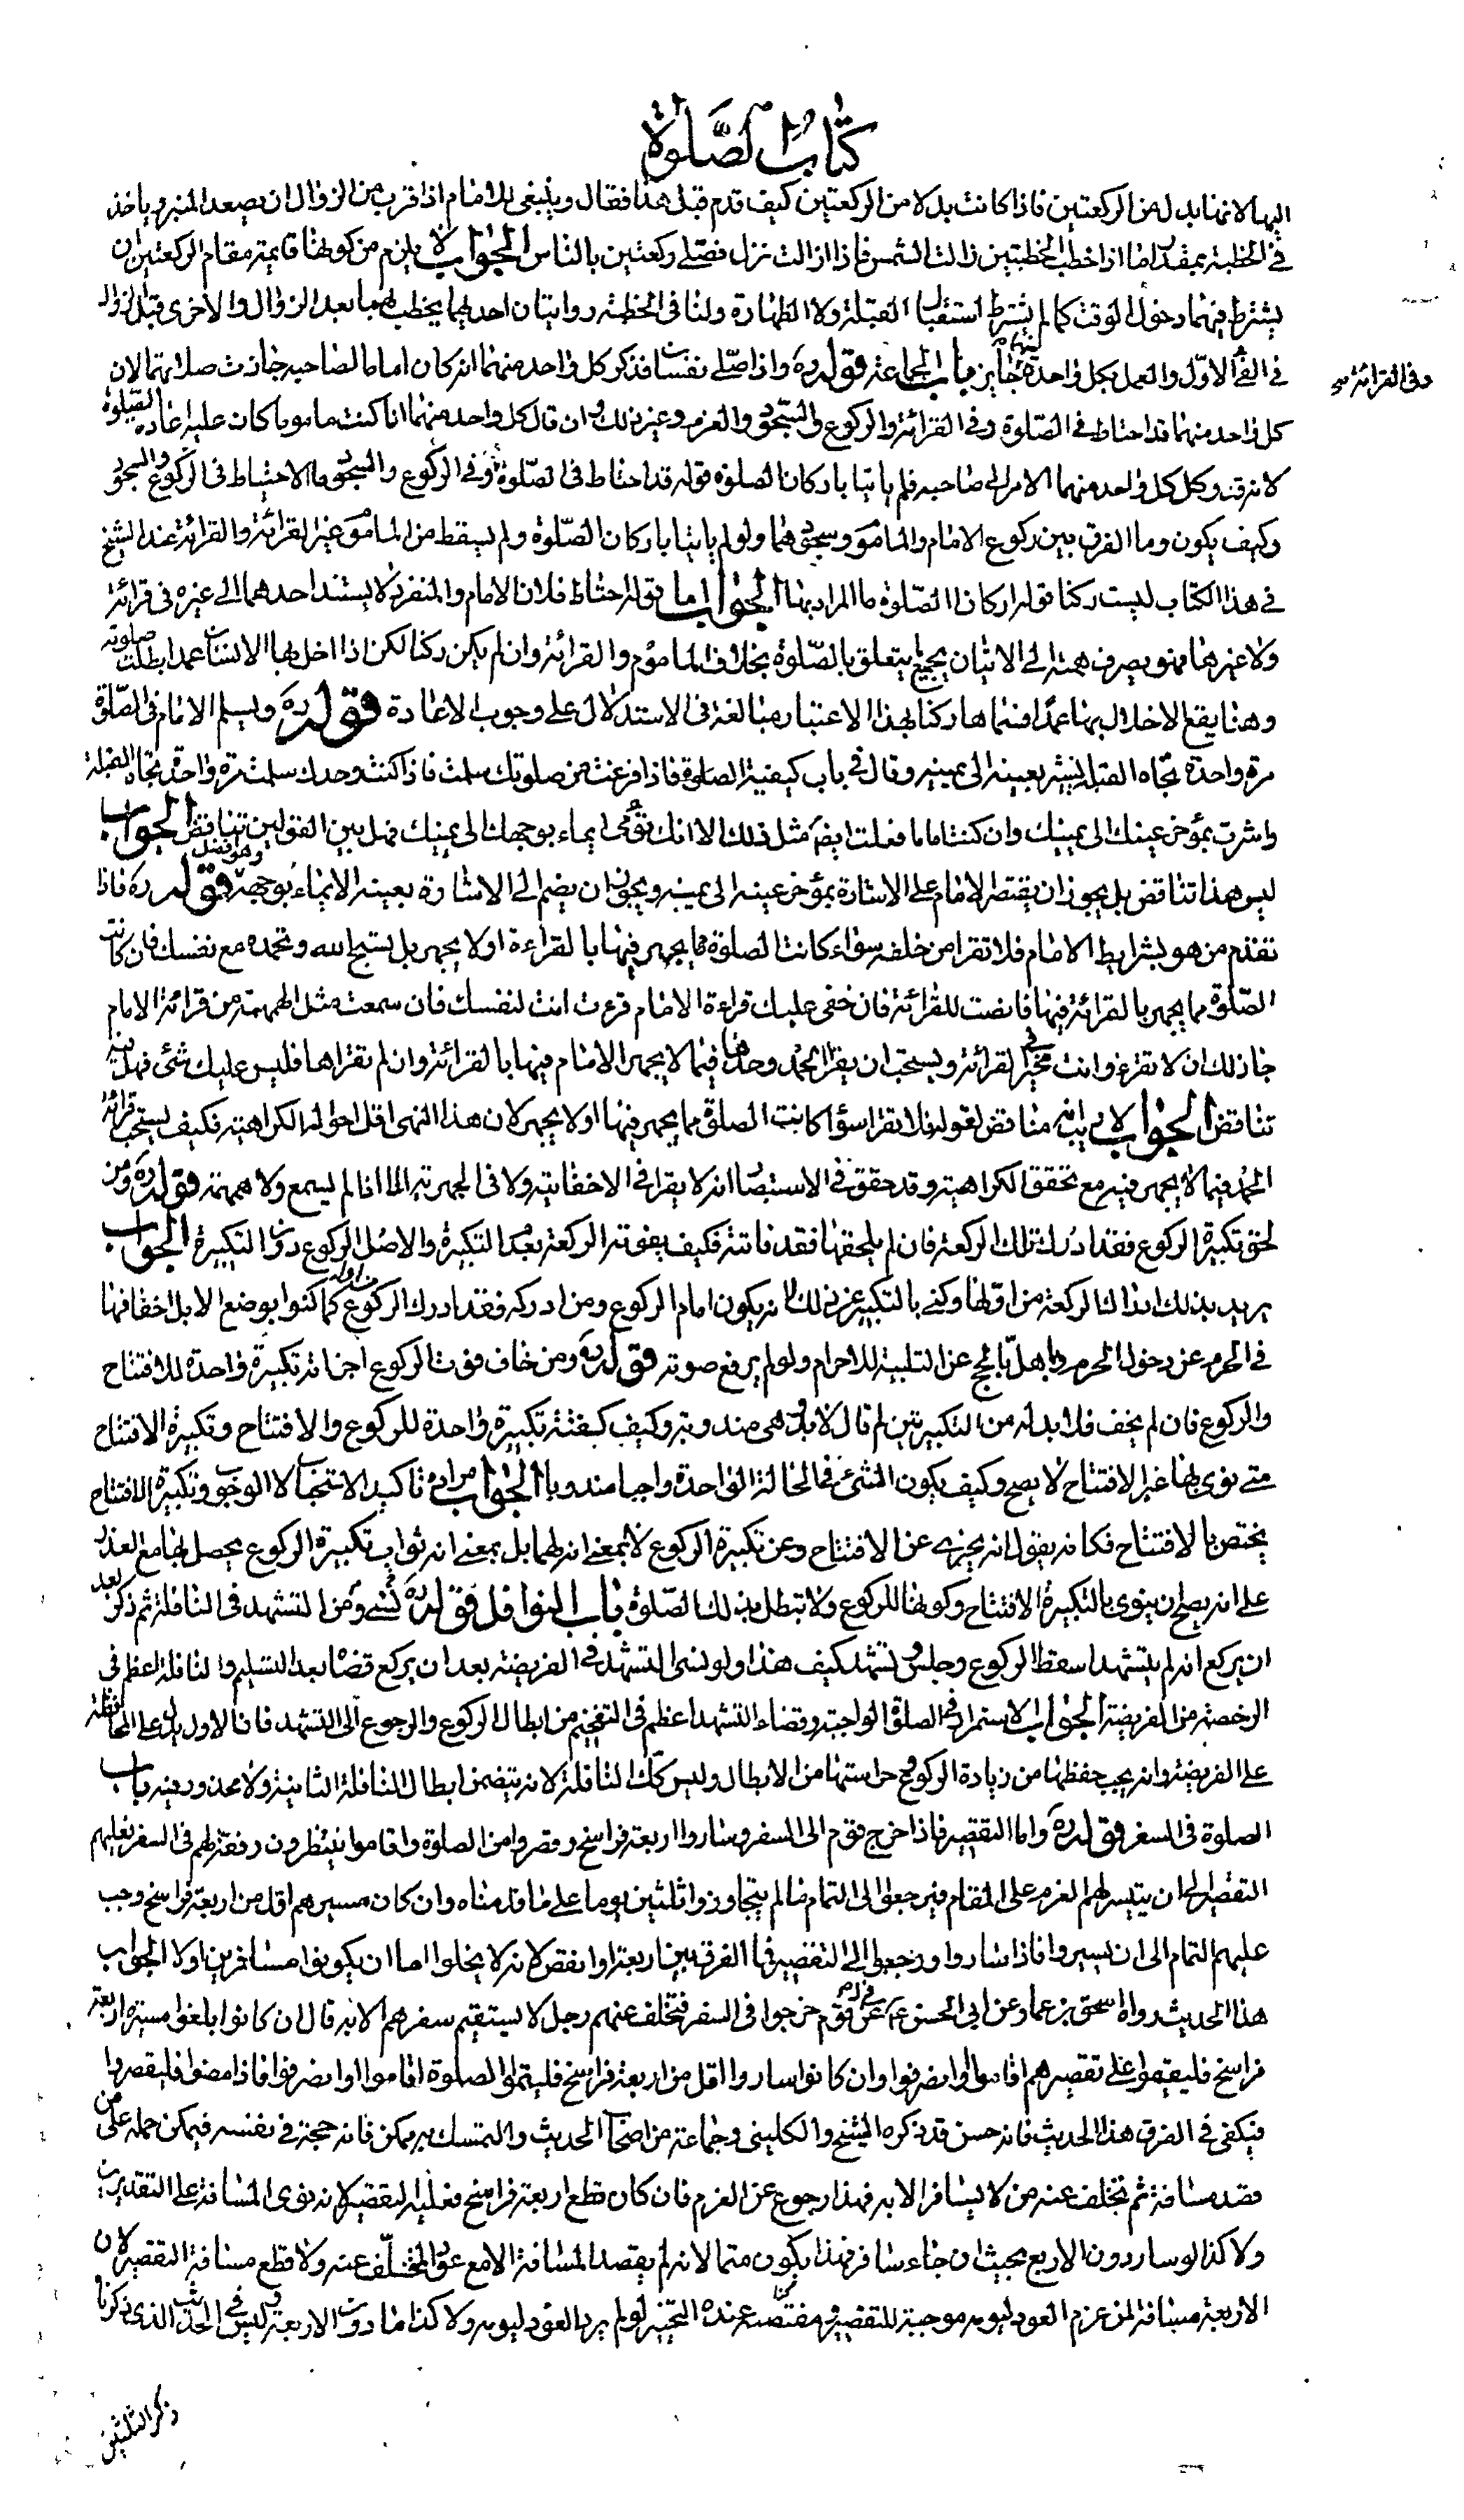 كتاب الصلوة
اليها لانها بدل من الركعتين فاذا كانت بدلا من الركعتين كيف قدم قبل هذا فقال وينبغي للامام اذا قرب من الزوال ان يصعد المنبر وياخذ
في الخطبة بمقدار ما اذا خطب الخطبتين زالت الشمس فاذا زالت نزل فصلى ركعتين بالناس الجواب لا يلزم من كونها قايمة مقام الركعتين ان
يشترط فيهما دخول الوقت كما لم يشترط استقبال القبلة ولا الطهارة ولنا في الخطبة روايتان احديهما يخطب لهما بعد الزوال والاخرى قبل الزوال
في الفئ الاول والعمل بكل واحدة منهما جايز باب الجماعة قوله ره واذا صلى نفسان فذكر كل واحد منهما انه كان اماما لصاحبه جازت صلاتهما لان
وفى القرائة صح
كل واحد منهما قد احتاط في الصلوة وفي القرائة والركوع والسجود والعزم وغير ذلك وان قال كل واحد منهما انا كنت ماموما كان عليه اعادة الصلوة
لانه قد وكل كل واحد منهما الامر الى صاحبه فلم ياتيا باركان الصلوة قوله قد احتاط في الصلوة وفي الركوع والسجود ما الاحتياط في الركوع والسجود
وكيف يكون وما الفرق بين ركوع الامام والماموم وسجودهما ولو لم ياتيا باركان الصلوة ولم يسقط من الماموم غير القرائة والقرائة عند الشيخ
في هذا الكتاب ليست ركنا قوله اركان الصلوة ما المراد بها الجواب اما قوله احتاط فلان الامام والمنفرد لا يستند احدهما الى غيره في قرائة
ولا غيرها فهو يصرف همته الى الاتيان بجميع يتعلق بالصلوة بخلاف الماموم والقرائة وان لم يكن ركنا لكن اذا اخل بها الانسان عمدا بطلت صلوته
وهنا يقع الاخلال بها عمدا فسماها ركنا بهذا الاعتبار مبالغة في الاستدلال على وجوب الاعادة قوله ره ويسلم الامام في الصلوة
مرة واحدة تجاه القبلة يشير بعينه الى يمينه وقال في باب كيفية الصلوة فاذا فرغت من صلوتك سلمت فاذا كنت وحدك سلمت مرة واحدة تجاه القبلة
واشرت بمؤخر عينك الى يمينك وان كنت اماما فعلت ايضا مثل ذلك الا انك تؤمى ايماء بوجهك الى يمينك فهل بين القولين تناقض الجواب
ليس هذا تناقض بل يجوز ان يقتصر الامام على الاشارة بمؤخر عينه الى يمينه ويجوز ان يضم الى الاشارة بعينه الايماء بوجهه وهو افضل قوله ره فاذا
تقدم من هو بشرايط الامام فلا تقرا من خلفه سواء كانت الصلوة مما يجهر فيها بالقراءة او لا يجهر بل تسبح الله وتحمده مع نفسك فان كانت
الصلوة مما يجهر بالقرائة فيها فانصت للقرائة فان خفى عليك قراءة الامام قرءت انت لنفسك فان سمعت مثل الهمهمة من قرائة الامام
جاز لك ان لا تقرء وانت مخير في القرائة ويستحب ان يقرا الحمد وحدها فيما لا يجهر الامام فيها بالقرائة وان لم تقراها فليس عليك شئ فهل فيه
تناقض الجواب لا ريب انه مناقض لقوله فلا تقرا سواء كانت الصلوة مما يجهر فيها او لا يجهر لان هذا النهى اقل احواله الكراهية فكيف يستحب قرائة
الحمد فيما لا يجهر فيه مع تحقق الكراهية وقد حقق في الاستبصار انه لا يقرا في الاخفاتية ولا في الجهرية الا اذا لم يسمع ولا همهمة قوله ره ومن
لحق تكبيرة الركوع فقد ادرك تلك الركعة فان لم يلحقها فقد فاتته فكيف يفوته الركعة بعد التكبيرة والاصل الركوع دون التكبيرة الجواب
يريد بذلك ادراك الركعة من اولها وكنى بالتكبير عن ذلك لانه يكون امام الركوع ومن ادركه فقد ادرك الركوع من اوله كما كنوا بوضع الابل اخفافها
في الحرم عن دخول الحرم وباهل بالحج عن التلبية للاحرام ولو لم يرفع صوته قوله ره ومن خاف فوت الركوع اجزاته تكبيرة واحدة للافتتاح
والركوع فان لم يخف فلا بد له من التكبيرتين لم قال لا بد وهي مندوبة وكيف كفته تكبيرة واحدة للركوع والافتتاح وتكبيرة الافتتاح
متى نوى بها غير الافتتاح لا يصح وكيف يكون الشئ في الحالة الواحدة واجبا مندوبا الجواب مراده تاكيد الاستحباب لا الوجوب وتكبيرة الافتتاح
يختص بالافتتاح فكانه يقول انه يجزى عن الافتتاح وعن تكبيرة الركوع لا بمعنى انه لهما بل بمعنى انه ثواب تكبيرة الركوع يحصل بها مع العذر
على انه يصلح ان ينوى بالتكبيرة الافتتاح وكونها للركوع ولا تبطل بذلك الصلوة باب النوافل قوله ره ومن نسى التشهد في النافلة ثم ذكر بعد
ان يركع انه لم يتشهد اسقط الركوع وجلس وتشهد كيف هذا ولو نسى التشهد في الفريضة بعد ان يركع قضاه بعد التسليم والنافلة اعظم في
الرخصة من الفريضة الجواب الاستمرار في الصلوة الواجبة وقضاء التشهد اعظم في التفخيم من ابطال الركوع والرجوع الى التشهد فان الاول يدل على المحافظة
على الفريضة وانه يجب حفظها من زيادة الركوع وحراستها من الابطال وليس كك النافلة لانه يتضمن ابطال النافلة الثانية ولا محذور فيه باب
الصلوة في السفر قوله ره واما التقصير فاذا خرج قوم الى السفر وساروا اربعة فراسخ وقصروا من الصلوة واقاموا ينتظرون رفقة لهم في السفر فعليهم
التقصير الى ان يتيسر لهم العزم على المقام فيرجعوا الى التمام ما لم يتجاوزوا ثلثين يوما على ما قدمناه وان كان مسيرهم اقل من اربعة فراسخ وجب
عليهم التمام الى ان يسيروا فاذا ساروا ورجعوا الى التقصير فما الفرق بين اربعة او انقص لانه لا يخلوا اما ان يكونوا مسافرين او لا الجواب
هذا الحديث رواه اسحق بن عمار عن ابى الحسن ع في قوم خرجوا في السفر فتخلف عنهم رجل لا يستقيم سفرهم الا به قال ان كانوا بلغوا مسيرة اربعة
فراسخ فليقيموا على تقصيرهم اقاموا او انصرفوا وان كانوا ساروا اقل من اربعة فراسخ فليتموا الصلوة اقاموا او انصرفوا فاذا مضوا فليقصروا
فيكفى في الفرق هذا الحديث فانه حسن قد ذكره الشيخ والكلينى وجماعة من اصحاب الحديث والتمسك به ممكن فانه حجة في نفسه فيمكن حمله على من
قصد مسافة ثم تخلف عنه من لا يسافر الا به فهذا رجوع عن العزم فان كان قطع اربعة فراسخ فعليه التقصير لانه نوى المسافة على التقديرين
ولا كذا لو سار دون الاربع بحيث ان جاء سافر فهذا يكون متما لانه لم يقصد المسافة الا مع عود المتخلف عنه ولا قطع مسافة التقصير لان
الاربعة مسافة لمن عزم العود ليومه موجبة للتقصير ومقتضية عنده التخيير لو لم يرد العود ليومه ولا كذا ما دون الاربعة وليس في الحديث الذي ذكرنا
ذكر الثلثين